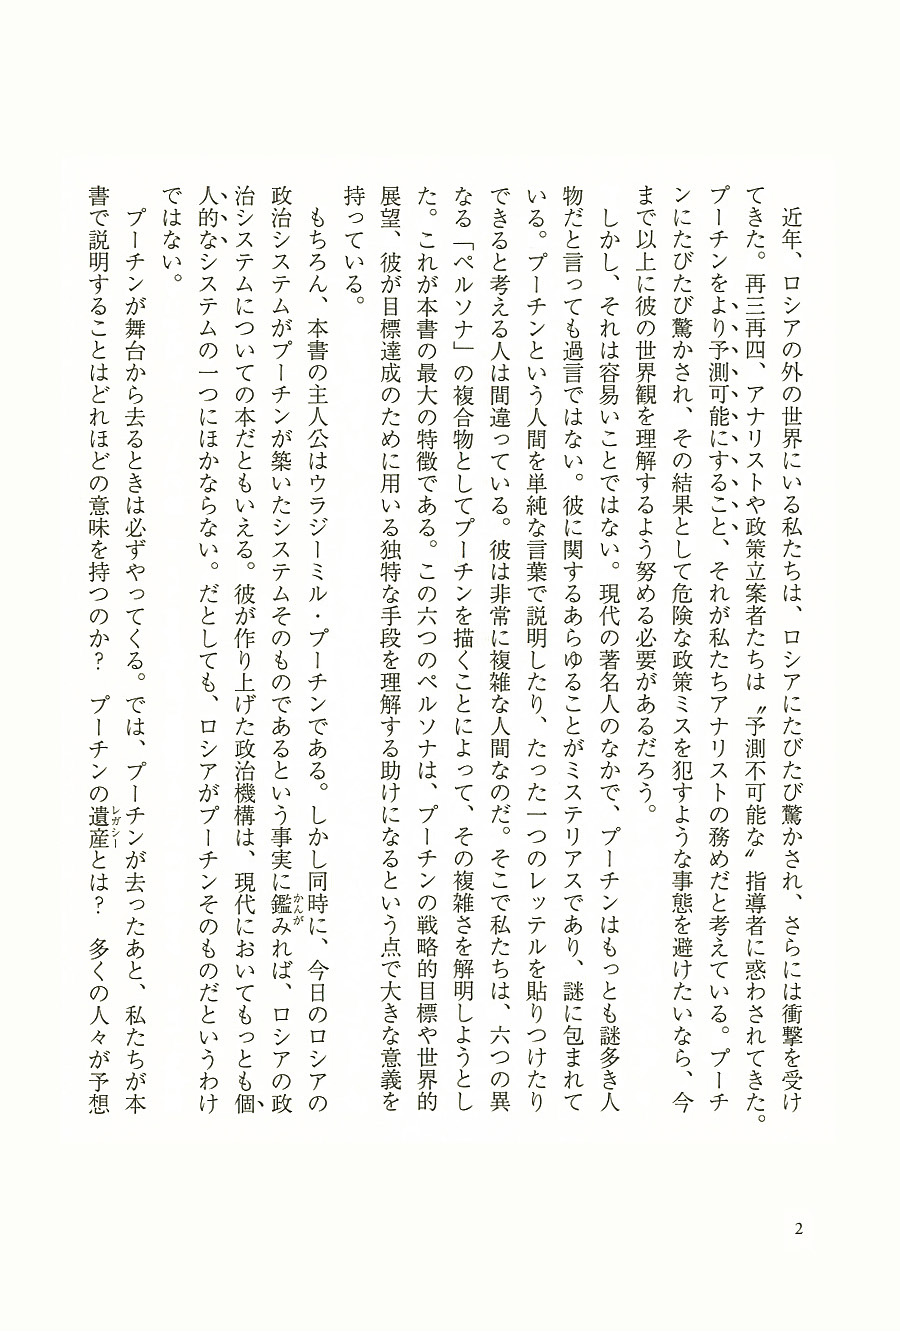 近年、ロシアの外の世界にいる私たちは、ロシアにたびたび驚かされ、さらには衝撃を受け
てきた。再三再四、アナリストや政策立案者たちは〝予測不可能な〟指導者に惑わされてきた。
プーチンをより予測可能にすること、それが私たちアナリストの務めだと考えている。プーチ
ンにたびたび驚かされ、その結果として危険な政策ミスを犯すような事態を避けたいなら、今
まで以上に彼の世界観を理解するよう努める必要があるだろう。
　しかし、それは容易いことではない。現代の著名人のなかで、プーチンはもっとも謎多き人
物だと言っても過言ではない。彼に関するあらゆることがミステリアスであり、謎に包まれて
いる。プーチンという人間を単純な言葉で説明したり、たった一つのレッテルを貼りつけたり
できると考える人は間違っている。彼は非常に複雑な人間なのだ。そこで私たちは、六つの異
なる「ペルソナ」の複合物としてプーチンを描くことによって、その複雑さを解明しようとし
た。これが本書の最大の特徴である。この六つのペルソナは、プーチンの戦略的目標や世界的
展望、彼が目標達成のために用いる独特な手段を理解する助けになるという点で大きな意義を
持っている。
　もちろん、本書の主人公はウラジーミル・プーチンである。しかし同時に、今日のロシアの
政治システムがプーチンが築いたシステムそのものであるという事実に鑑みれば、ロシアの政
かんが
治システムについての本だともいえる。彼が作り上げた政治機構は、現代においてもっとも個
人的なシステムの一つにほかならない。だとしても、ロシアがプーチンそのものだというわけ
ではない。
　プーチンが舞台から去るときは必ずやってくる。では、プーチンが去ったあと、私たちが本
書で説明することはどれほどの意味を持つのか？　プーチンの遺産とは？　多くの人々が予想
レガシー
2